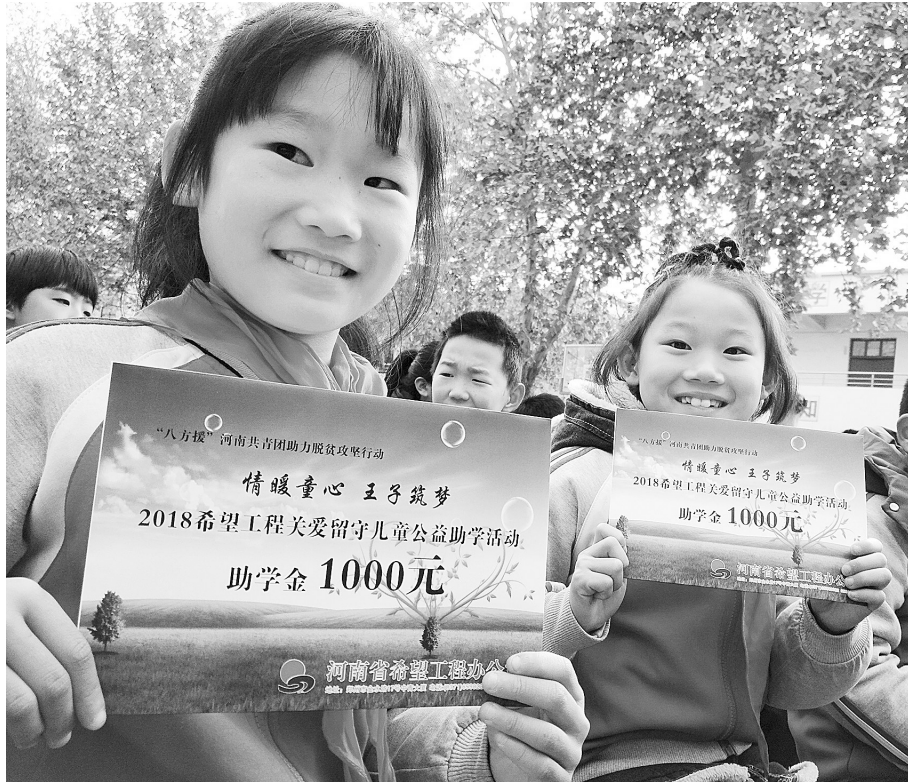 “八方援”河南共青团助力脱贫攻坚行动
情暖童心 王子筑梦
2018希望工程关爱留守儿童公益助学活动
助学金 1000元
河南省希望工程办公
“八方援”河南共青团助力脱贫攻坚行动
情暖童心 王子筑梦
2018希望工程关爱留守儿童公益助学活动
助学金 1000元
河南省希望工程办公
学
知